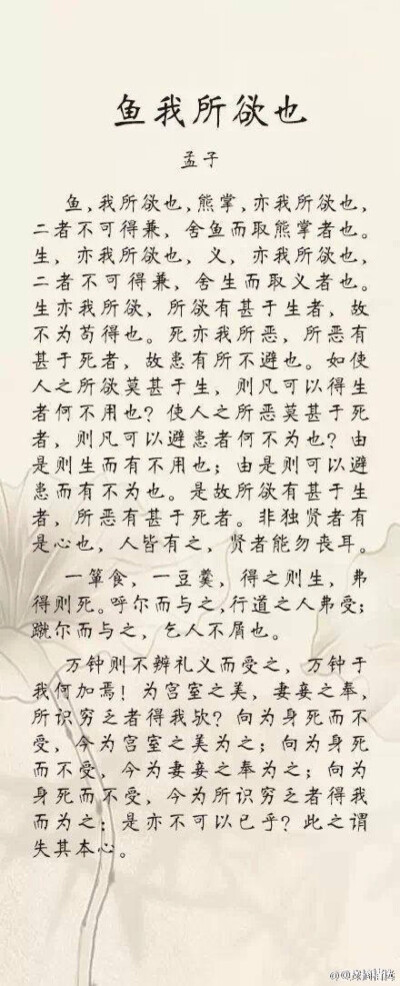 鱼我所欲也
孟子
鱼,我所欲也,熊掌,亦我所欲也,
二者不可得兼,舍鱼而取熊掌者也。
生,亦我所欲也,义,亦我所欲也,
二者不可得兼,舍生而取义者也。
生亦我所欲,所欲有甚于生者,故
不为苟得也。死亦我所恶,所恶有
甚于死者,故患有所不避也。如使
人之所欲莫甚于生,则凡可以得生
者何不用也?使人之所恶莫甚于死
者,则凡可以避患者何不为也?由
是则生而有不用也;由是则可以避
患而有不为也。是故所欲有甚于生
者,所恶有甚于死者。非独贤者有
是心也,人皆有之,贤者能勿丧耳。
一箪食,一豆羹,得之则生,弗
得则死。呼尔而与之,行道之人弗受;
蹴尔而与之,乞人不屑也。
万钟则不辨礼义而受之,万钟于
我何加焉!为宫室之美,妻妾之奉,
所识穷乏者得我欤?向为身死而不
受,今为宫室之美为之;向为身死
而不受,今为妻妾之奉为之;向为
身死而不受,今为所识穷乏者得我
而为之;是亦不可以已乎?此之谓
失其本心。